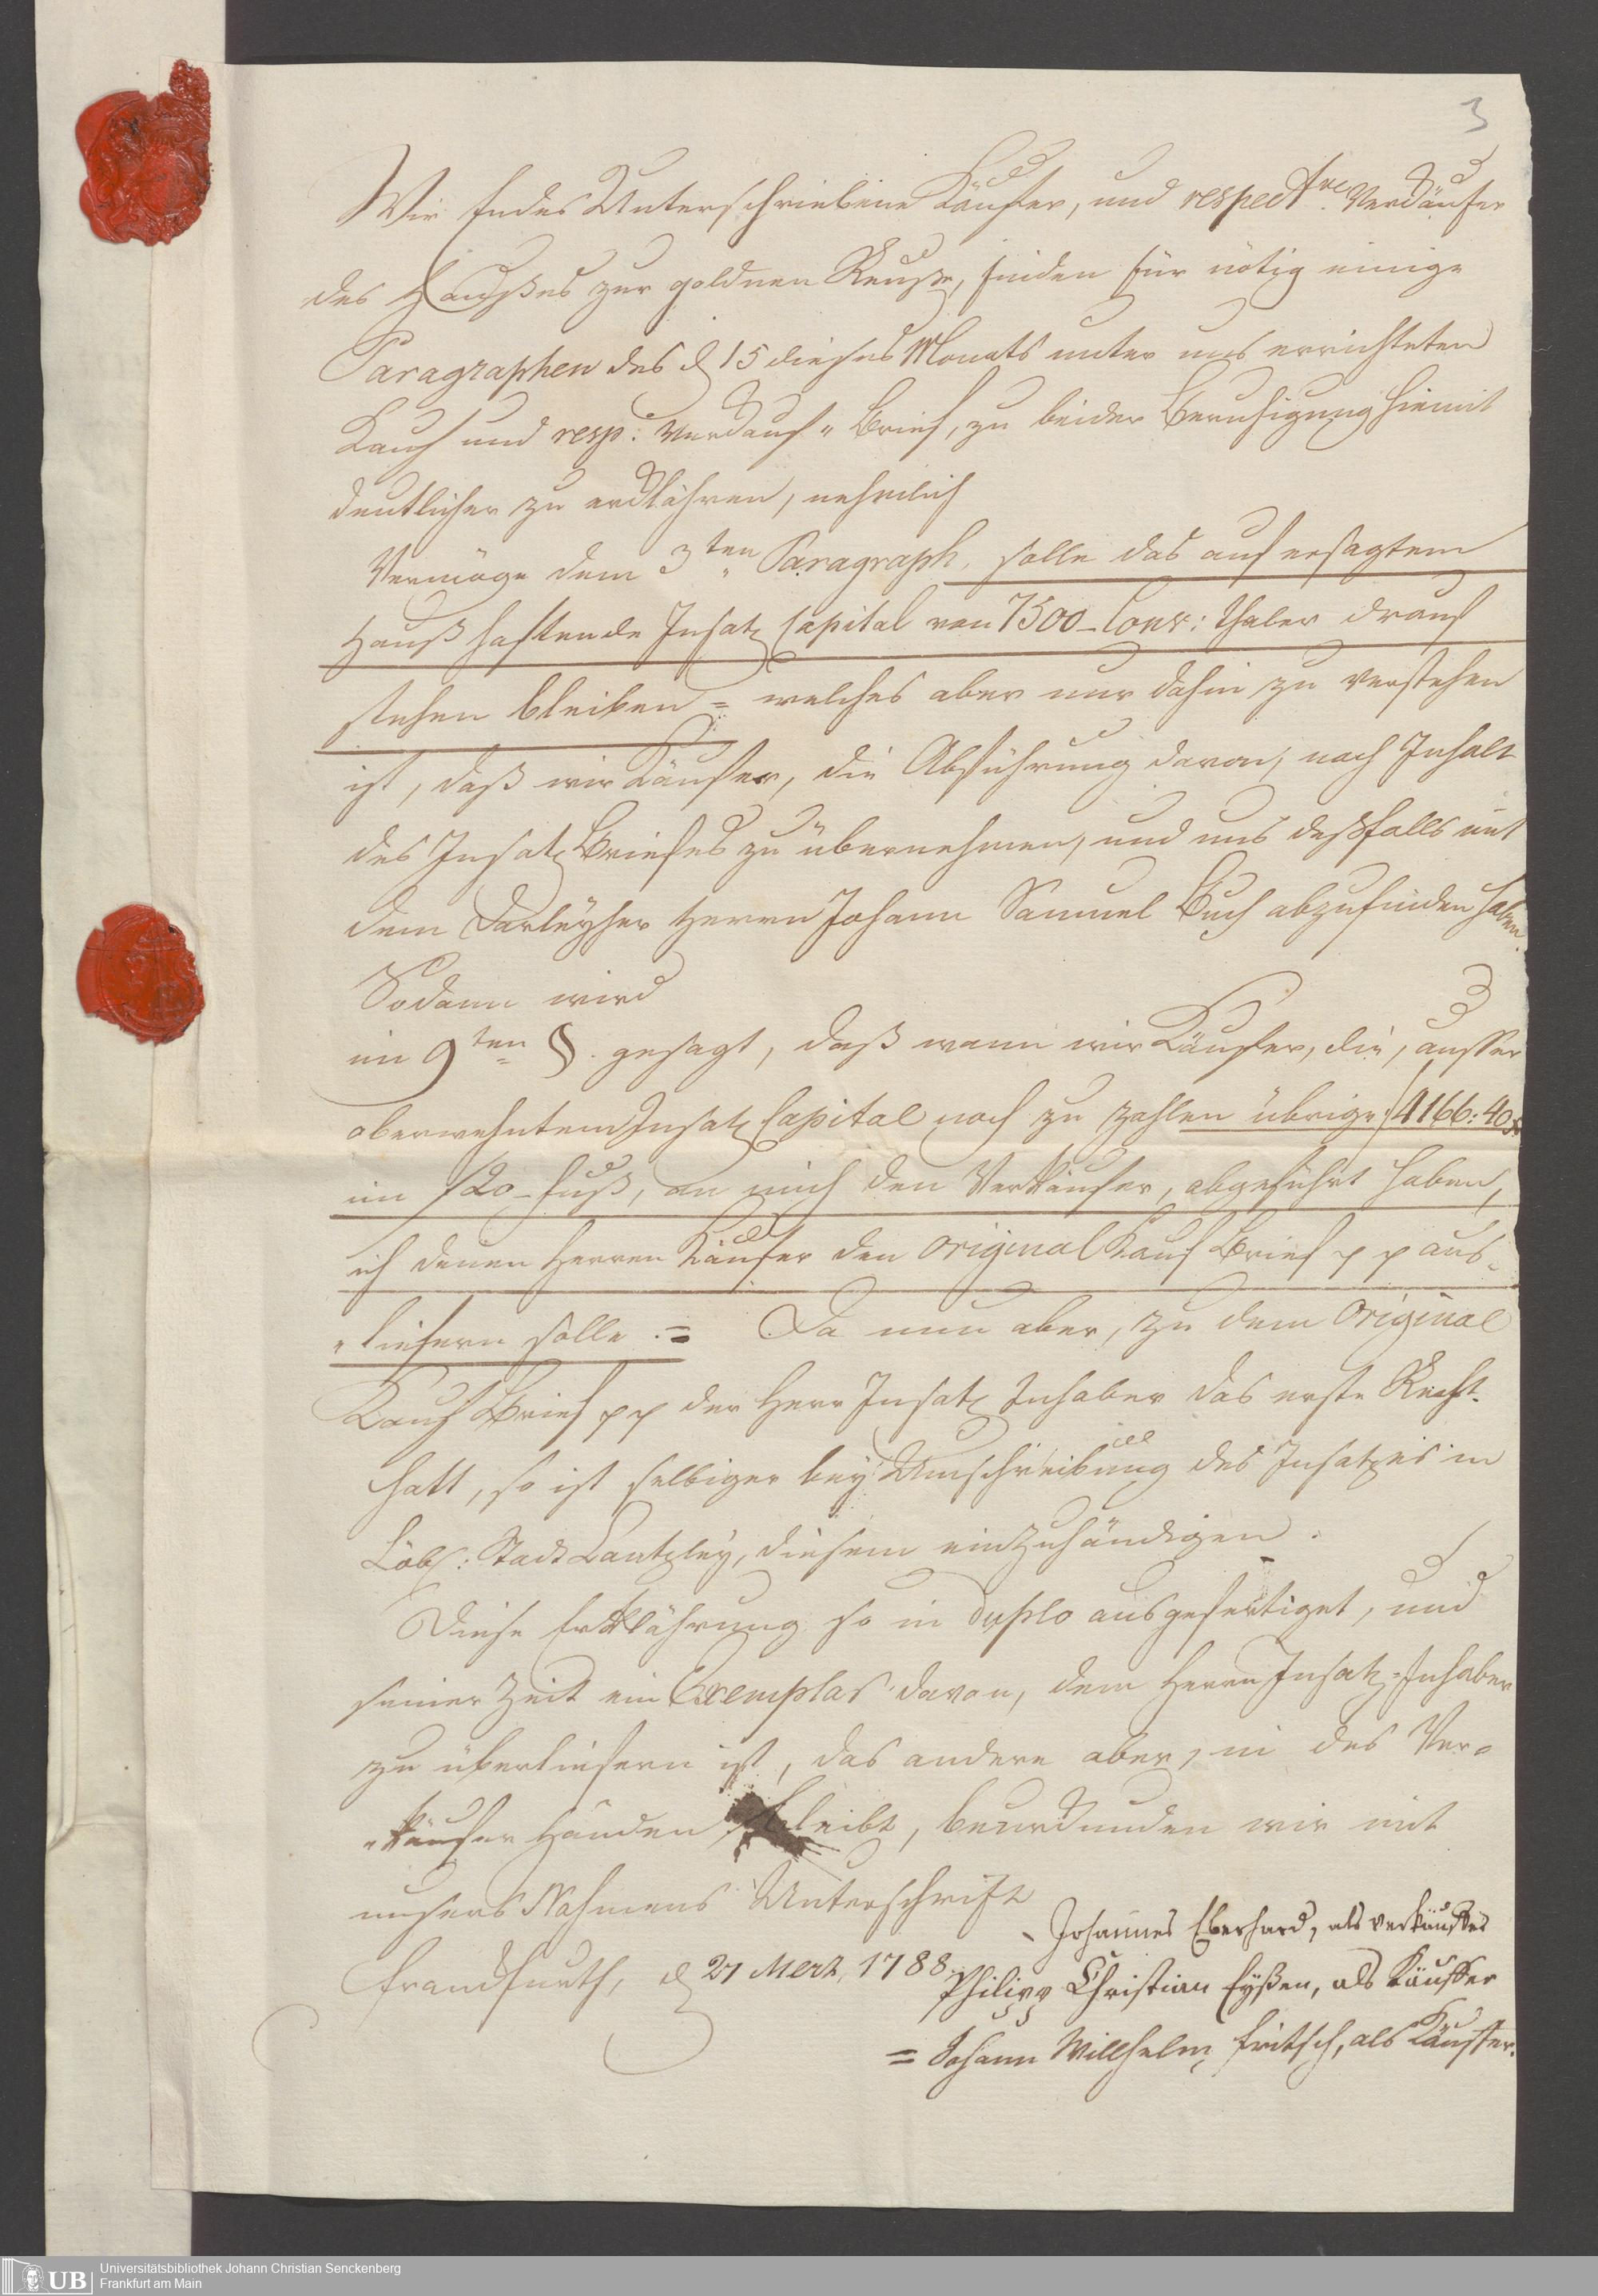 3
Wir Endes Unterschriebene Käufer, und respectve. Verkäufer
des Haußes zur goldnen Reuße, finden für nötig einige
Paragraphen des d 15 dieses Monats unter uns errichteten
Kauf und resp: Verkauf Brief, zu beider Beruhigung hiemit
deutlicher zu erklähren, nehmlich
Vermöge dem 3ten Paragraph, solle das auf ersagtem
Hauß haftende Insatz Capital von 7500 Conv: Thaler drauf
stehen bleiben = welches aber nur dahin zu verstehen
ist, daß wir Käufer, die Abführung davon, nach Inhalt
des Insatz Briefes zu übernehmen, und uns deßfalls mit
dem Darleyher Herrn Johann Samuel Buch abzufinden haben.
Sodann wird
im 9ten §. gesagt, daß wann wir Käufer, die, ausser
oberwehntem Insatz Capital noch zu zahlen übrige f 4166:40 x
im f 20 Fuß, an mich den Verkäufer, abgeführt haben,
ich denen Herren Käufer den Original Kauf Brief pp aus-
liefern solle. = Da nun aber, zu dem Original
Kauf Brief pp der Herr Insatz Inhaber das erste Recht
hatt, so ist selbiger bey Umschreibung des Insatzes in
Löbl: Stadt Cantzley, diesem einzuhändigen.
Diese Erklährung so in duplo ausgefertiget, und
seiner Zeit ein Exemplar davon, dem Herrn Insatz-Inhaber
zu überliefern ist, das andere aber, in des Ver-
käufer Händen bleibt, beurkunden wir mit
unsers Nahmens Unterschrift
Franckfurth, d 27 Mertz, 1788.
Johannes Eberhard, als verkäuffer
Philipp Christian Eyßen, als Käuffer
= Johann Willhelm Fritsch, als Käuffer.
UB Universitätsbibliothek Johann Christian Senckenberg
Frankfurt am Main